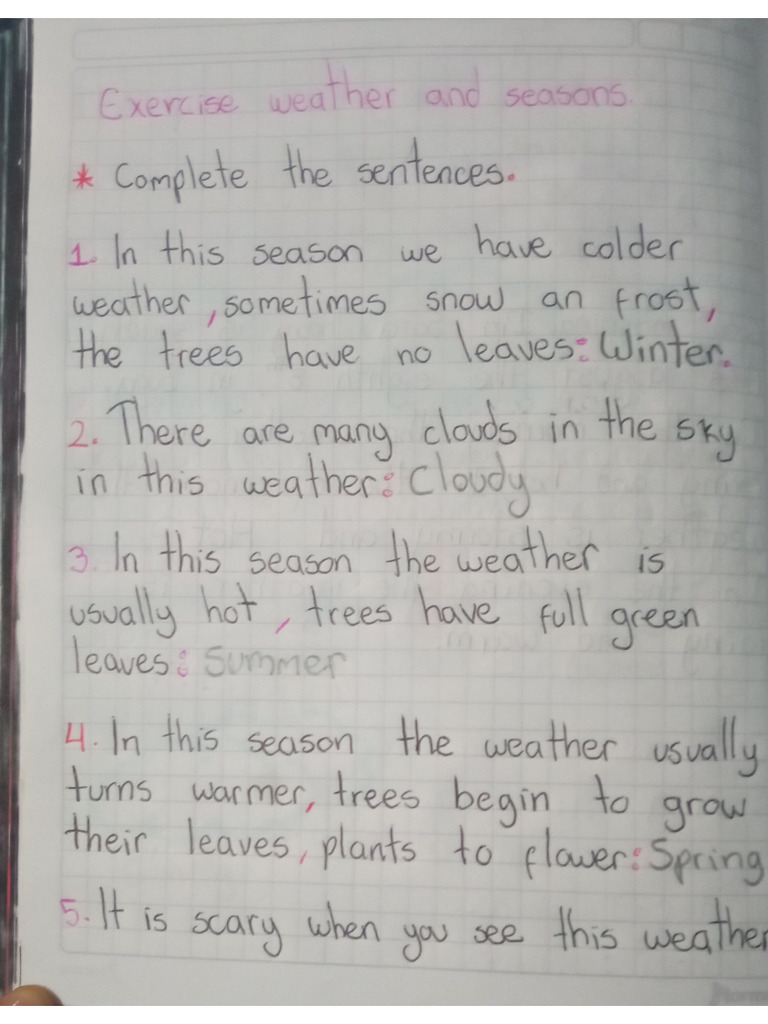 Exercise weather and seasons.
* Complete the sentences.
1. In this season we have colder
weather, sometimes snow an frost,
the trees have no leaves: Winter.
2. There are many clouds in the sky
in this weather: Cloudy
3. In this season the weather is
usually hot, trees have full green
leaves: Summer
4. In this season the weather usually
turns warmer, trees begin to grow
their leaves, plants to flower: Spring
5. It is scary when you see this weather
Norma